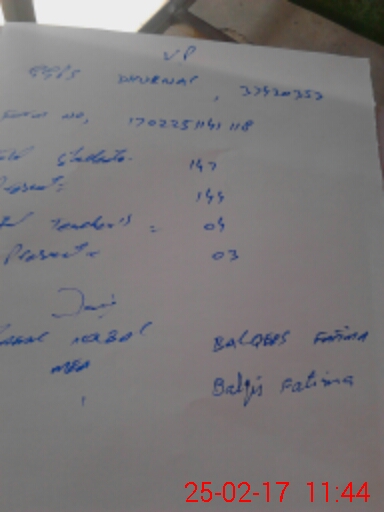 VP
GGPS DHURNAL, 37420353
Form no, 1702251141118
Students. 147
Present: 144
Teacher's = 04
Present = 03
BALQEES FATIMA
MEA
Balqis Fatima
25-02-17 11:44